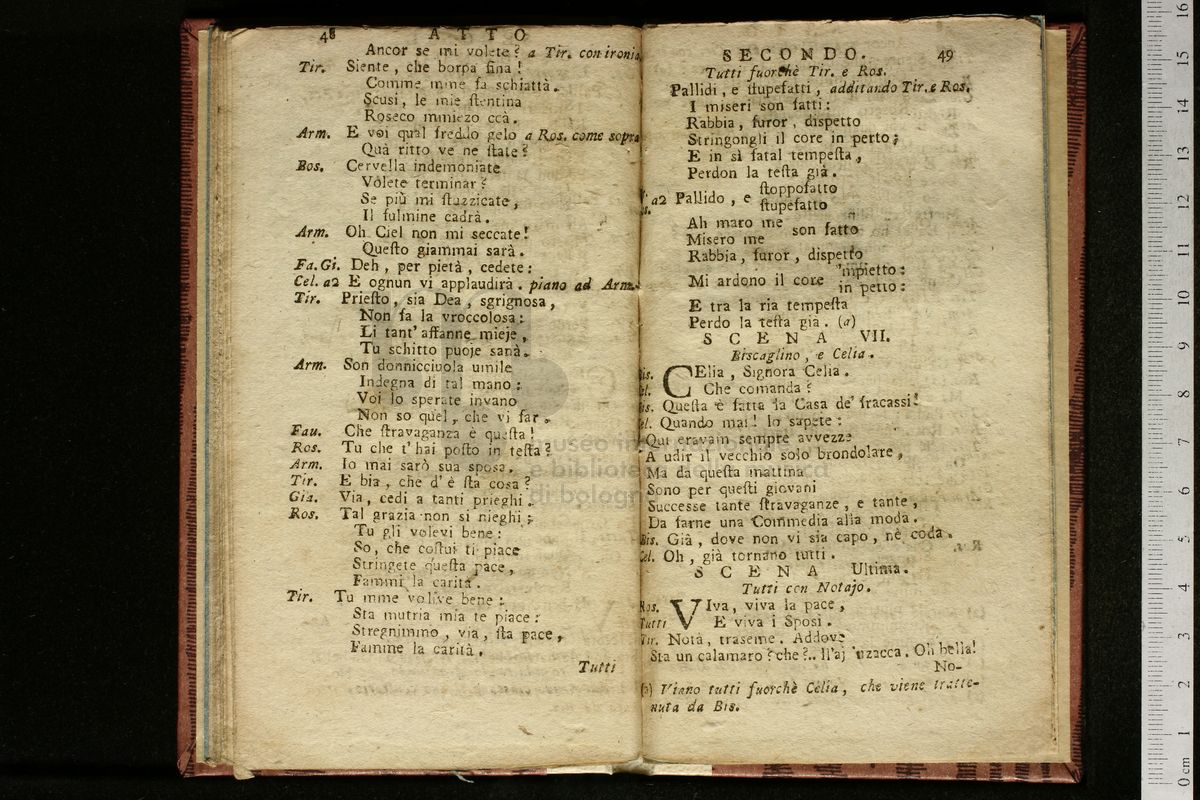 48 ATTO
Ancor se mi volete? a Tir. con ironia
Tir. Siente, che borpa fina!
Comme mme fa schiattà.
Scusi, le mie stentina
Roseco mmiezo ccà.
Arm. E voi qual freddo gelo a Ros. come sopra
Quà ritto ve ne state?
Bos. Cervella indemoniate
Volete terminar?
Se più mi stuzzicate,
Il fulmine cadrà.
Arm. Oh Ciel non mi seccate!
Questo giammai sarà.
Fa. Gi. Deh, per pietà, cedete:
Cel. a2 E ognun vi applaudirà. piano ad Arm.
Tir. Priesto, sia Dea, sgrignosa,
Non fa la vroccolosa:
Li tant' affanne mieje,
Tu schitto puoje sanà.
Arm. Son donnicciuola umile
Indegna di tal mano:
Voi lo sperate invano
Non so quel, che vi far.
Fau. Che stravaganza è questa!
Ros. Tu che t' hai posto in testa?
Arm. Io mai sarò sua sposa.
Tir. E bia, che d' è sta cosa?
Gia. Via, cedi a tanti prieghi.
Ros. Tal grazia non si nieghi;
Tu gli volevi bene:
So, che costui ti piace
Stringete questa pace,
Fammi la carità.
Tir. Tu mme volive bene:
Sta mutria mia te piace:
Stregnimmo, via, sta pace,
Famme la carità.
Tutti
SECONDO. 49
Tutti fuorchè Tir. e Ros.
Pallidi, e stupefatti, additando Tir. e Ros.
I miseri son fatti:
Rabbia, furor, dispetto
Stringongli il core in petto;
E in sì fatal tempesta,
Perdon la testa già.
a2 Pallido, e stoppofatto
stupefatto
Ah maro me
Misero me son fatto
Rabbia, furor, dispetto
Mi ardono il core 'mpietto:
in petto:
E tra la ria tempesta
Perdo la testa già. (a)
SCENA VII.
Biscaglino, e Celia.
Bis. CElia, Signora Celia.
Cel. Che comanda?
Bis. Questa è fatta la Casa de' fracassi!
Cel. Quando mai! Io sapete:
Qui eravam sempre avvezze
A udir il vecchio solo brondolare,
Ma da questa mattina
Sono per questi giovani
Successe tante stravaganze, e tante,
Da farne una Commedia alla moda.
Bis. Già, dove non vi sia capo, nè coda.
Cel. Oh, già tornano tutti.
SCENA Ultima.
Tutti con Notajo.
Ros. VIva, viva la pace,
Tutti E viva i Sposi.
Tir. Notà, traseme. Addovè
Sta un calamaro? che?.. ll'aj 'nzacca. Oh bella!
No-
(a) Viano tutti fuorchè Celia, che viene tratte-
nuta da Bis.